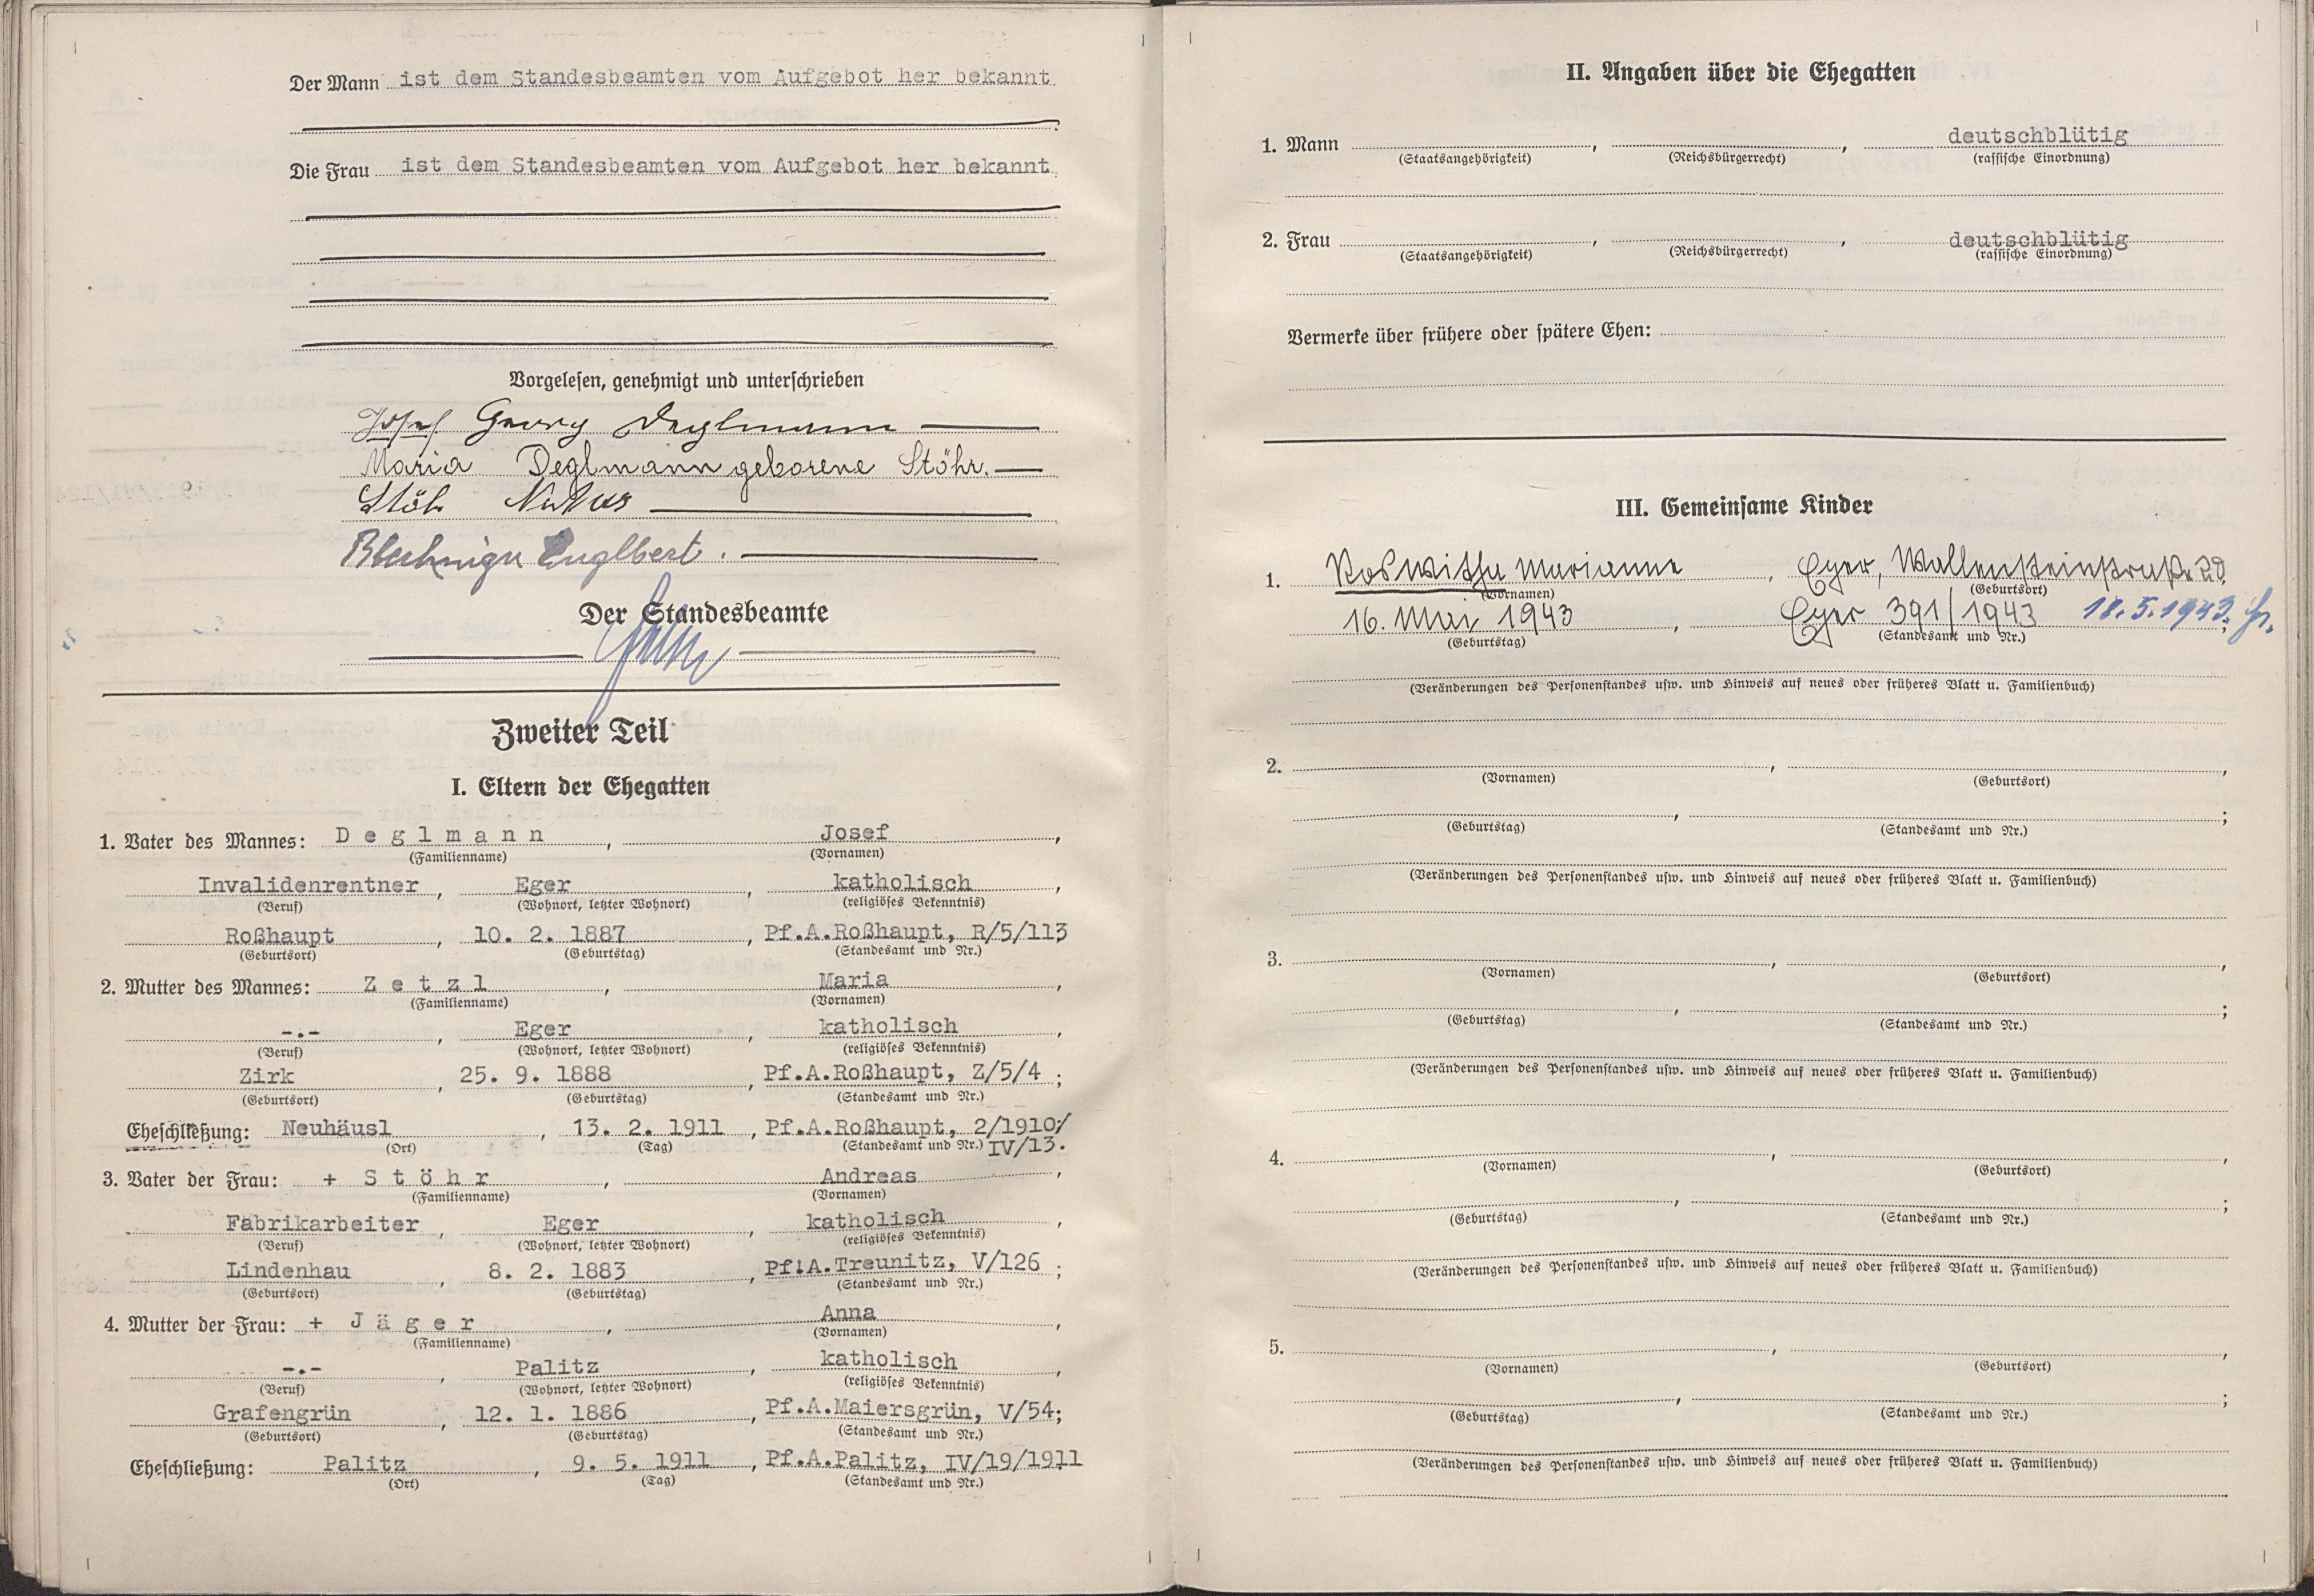 Der Mann ist dem Standesbeamten vom Aufgebot her bekannt
Die Frau ist dem Standesbeamten vom Aufgebot her bekannt
Vorgelesen, genehmigt und unterschrieben
Josef Georg Deglmann
Maria Deglmann geborene Stöhr.
Englbert.
Der Standesbeamte
Zweiter Teil
I. Eltern der Ehegatten
1. Vater des Mannes: Deglmann, Josef,
(Familienname) (Vornamen)
Invalidenrentner, Eger, katholisch,
(Beruf) (Wohnort, letzter Wohnort) (religiöses Bekenntnis)
Roßhaupt, 10. 2. 1887, Pf.A.Roßhaupt, R/5/113
(Geburtsort) (Geburtstag) (Standesamt und Nr.)
2. Mutter des Mannes: Zetzl, Maria,
(Familienname) (Vornamen)
-.-, Eger, katholisch,
(Beruf) (Wohnort, letzter Wohnort) (religiöses Bekenntnis)
Zirk, 25. 9. 1888, Pf.A.Roßhaupt, Z/5/4;
(Geburtsort) (Geburtstag) (Standesamt und Nr.)
Eheschließung: Neuhäusl, 13. 2. 1911, Pf.A.Roßhaupt, 2/1910/
(Ort) (Tag) (Standesamt und Nr.) IV/13.
3. Vater der Frau: + Stöhr, Andreas,
(Familienname) (Vornamen)
Fabrikarbeiter, Eger, katholisch,
(Beruf) (Wohnort, letzter Wohnort) (religiöses Bekenntnis)
Lindenhau, 8. 2. 1883, Pf.A.Treunitz, V/126;
(Geburtsort) (Geburtstag) (Standesamt und Nr.)
4. Mutter der Frau: + Jäger, Anna,
(Familienname) (Vornamen)
-.-, Palitz, katholisch,
(Beruf) (Wohnort, letzter Wohnort) (religiöses Bekenntnis)
Grafengrün, 12. 1. 1886, Pf.A.Maiersgrün, V/54;
(Geburtsort) (Geburtstag) (Standesamt und Nr.)
Eheschließung: Palitz, 9. 5. 1911, Pf.A.Palitz, IV/19/1911
(Ort) (Tag) (Standesamt und Nr.)
II. Angaben über die Ehegatten
1. Mann , , deutschblütig
(Staatsangehörigkeit) (Reichsbürgerrecht) (rassische Einordnung)
2. Frau , , deutschblütig
(Staatsangehörigkeit) (Reichsbürgerrecht) (rassische Einordnung)
Vermerke über frühere oder spätere Ehen:
III. Gemeinsame Kinder
1. Roswitha Marianne, Eger, Wallensteinstraße
(Vornamen) (Geburtsort)
16. Mai 1943, Eger 391/1943 18.5.1943.
(Geburtstag) (Standesamt und Nr.)
(Veränderungen des Personenstandes usw. und Hinweis auf neues oder früheres Blatt u. Familienbuch)
2. , ,
(Vornamen) (Geburtsort)
, ;
(Geburtstag) (Standesamt und Nr.)
(Veränderungen des Personenstandes usw. und Hinweis auf neues oder früheres Blatt u. Familienbuch)
3. , ,
(Vornamen) (Geburtsort)
, ;
(Geburtstag) (Standesamt und Nr.)
(Veränderungen des Personenstandes usw. und Hinweis auf neues oder früheres Blatt u. Familienbuch)
4. , ,
(Vornamen) (Geburtsort)
, ;
(Geburtstag) (Standesamt und Nr.)
(Veränderungen des Personenstandes usw. und Hinweis auf neues oder früheres Blatt u. Familienbuch)
5. , ,
(Vornamen) (Geburtsort)
, ;
(Geburtstag) (Standesamt und Nr.)
(Veränderungen des Personenstandes usw. und Hinweis auf neues oder früheres Blatt u. Familienbuch)